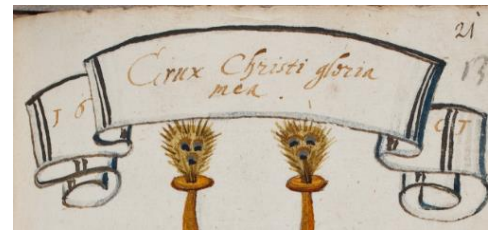 21
Crux Christi gloria
mea.
16